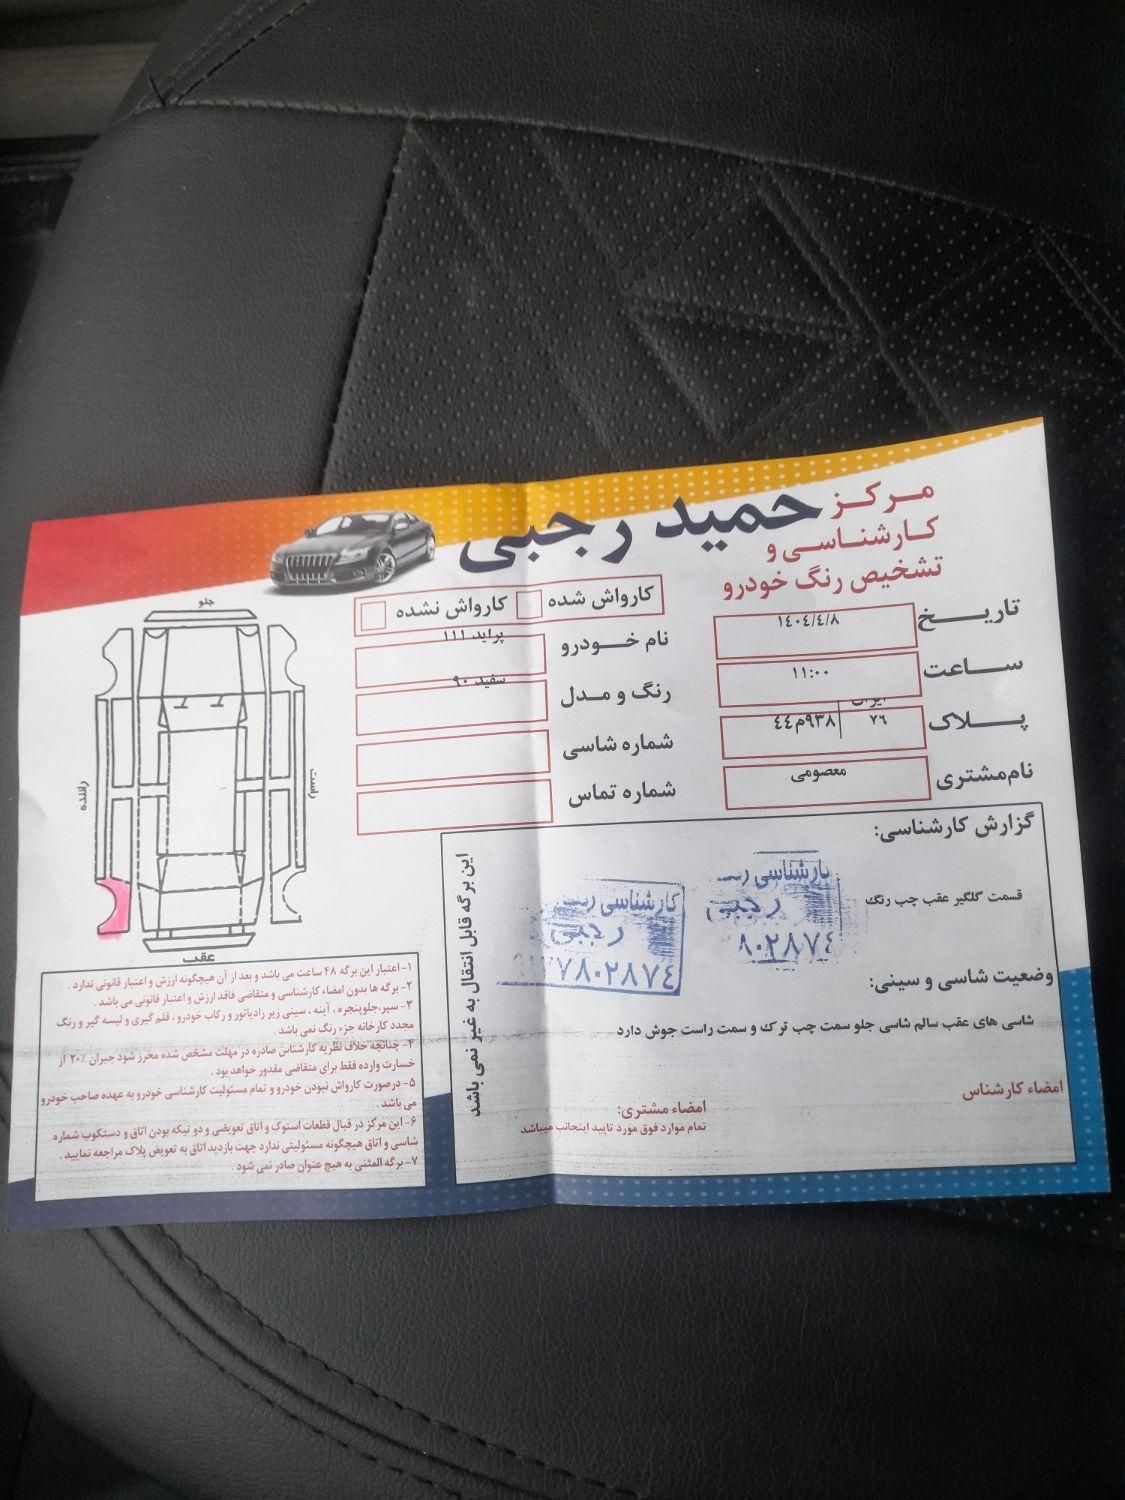 مرکز
کارشناسی و
تشخیص رنگ خودرو
حمید رجبی
کارواش شده
کارواش نشده
تاریخ
۱۴۰۴/۴/۸
ساعت
۱۱:۰۰
پلاک
ایران
۷۶
۹۳۸م۴۴
نام مشتری
معصومی
نام خودرو
پراید ۱۱۱
رنگ و مدل
سفید ۹۰
شماره شاسی
شماره تماس
جلو
راننده
راست
عقب
گزارش کارشناسی:
قسمت گلگیر عقب چپ رنگ
کارشناسی
رجبی
۸۰۲۸۷٤
کارشناسی
رجبی
۷۸۰۲۸۷٤
وضعیت شاسی و سینی:
شاسی های عقب سالم شاسی جلو سمت چپ ترک و سمت راست جوش دارد
امضاء کارشناس
امضاء مشتری:
تمام موارد فوق مورد تایید اینجانب میباشد
این برگه قابل انتقال به غیر نمی باشد
۱- اعتبار این برگه ۴۸ ساعت می باشد و بعد از آن هیچگونه ارزش و اعتبار قانونی ندارد .
۲- برگه ها بدون امضاء کارشناسی و متقاضی فاقد ارزش و اعتبار قانونی می باشد .
۳- سپر،جلوپنجره ، آینه ، سینی زیر رادیاتور و رکاب خودرو ، قلم گیری و لیسه گیر و رنگ
مجدد کارخانه جزء رنگ نمی باشد .
۴- چنانچه خلاف نظریه کارشناس صادره در مهلت مشخص شده محرز شود جبران ۲۰٪ از
خسارت وارده فقط برای متقاضی مقدور خواهد بود .
۵- درصورت کارواش نبودن خودرو و تمام مسئولیت کارشناسی خودرو به عهده صاحب خودرو
می باشد .
۶- این مرکز در قبال قطعات استوک و اتاق تعویضی و دو تیکه بودن اتاق و دستکوب شماره
شاسی و اتاق هیچگونه مسئولیتی ندارد جهت بازدید اتاق به تعویض پلاک مراجعه نمایید .
۷- برگه المثنی به هیچ عنوان صادر نمی شود .